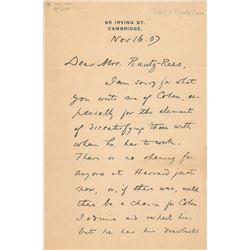 95 IRVING ST.
CAMBRIDGE.
Nov 16. 07
Dear Mrs. Runtz-Rees,
I am sorry for what
you write me of Cohen, es-
pecially for the element
of dissatisfying those with
whom he has to work.
There is no opening for
anyone at Harvard just
now, or, if there was, would
there be a chance for Cohen.
I admire and respect him
but he has his drawbacks